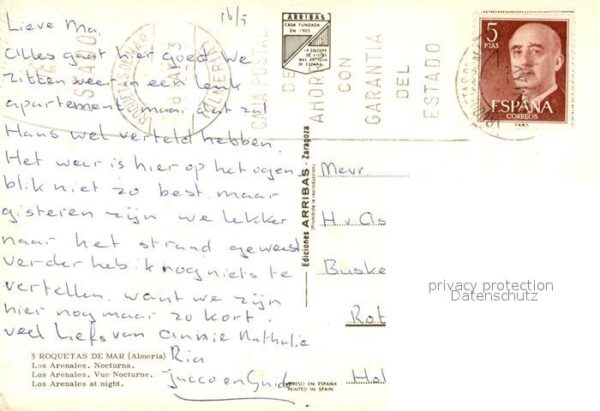 16/5
Lieve Ma.
Alles gaat hier goed we
zitten weer in een leuk
apartement maar dat zal
Hans wel verteld hebben.
Het weer is hier op het ogen
blik niet zo best maar
gisteren zijn we lekker
naar het strand geweest
verder heb ik nog niets te
vertellen, want we zijn
hier nog maar zo kort.
veel liefs van Annie Nathalie
Ria
Jacco en Guido
ARRIBAS
CASA FUNDADA
EN 1905
LA EDITORA
DE VISTAS
MAS ANTIGUA
DE ESPAÑA
CAJA POSTAL
DE
AHORROS
CON
GARANTIA
DEL
ESTADO
ROQUETAS DE MAR
ALMERIA
5
PTAS
ESPAÑA
CORREOS
F.N.M.T.
Ediciones ARRIBAS - Zaragoza
(Prohibida la reproducción)
Mevr
H v
Buske
Rot
Hol
privacy protection
Datenschutz
5 ROQUETAS DE MAR (Almería)
Los Arenales. Nocturna.
Los Arenales. Vue Nocturne.
Los Arenales at night.
IMPRESO EN ESPAÑA
PRINTED IN SPAIN